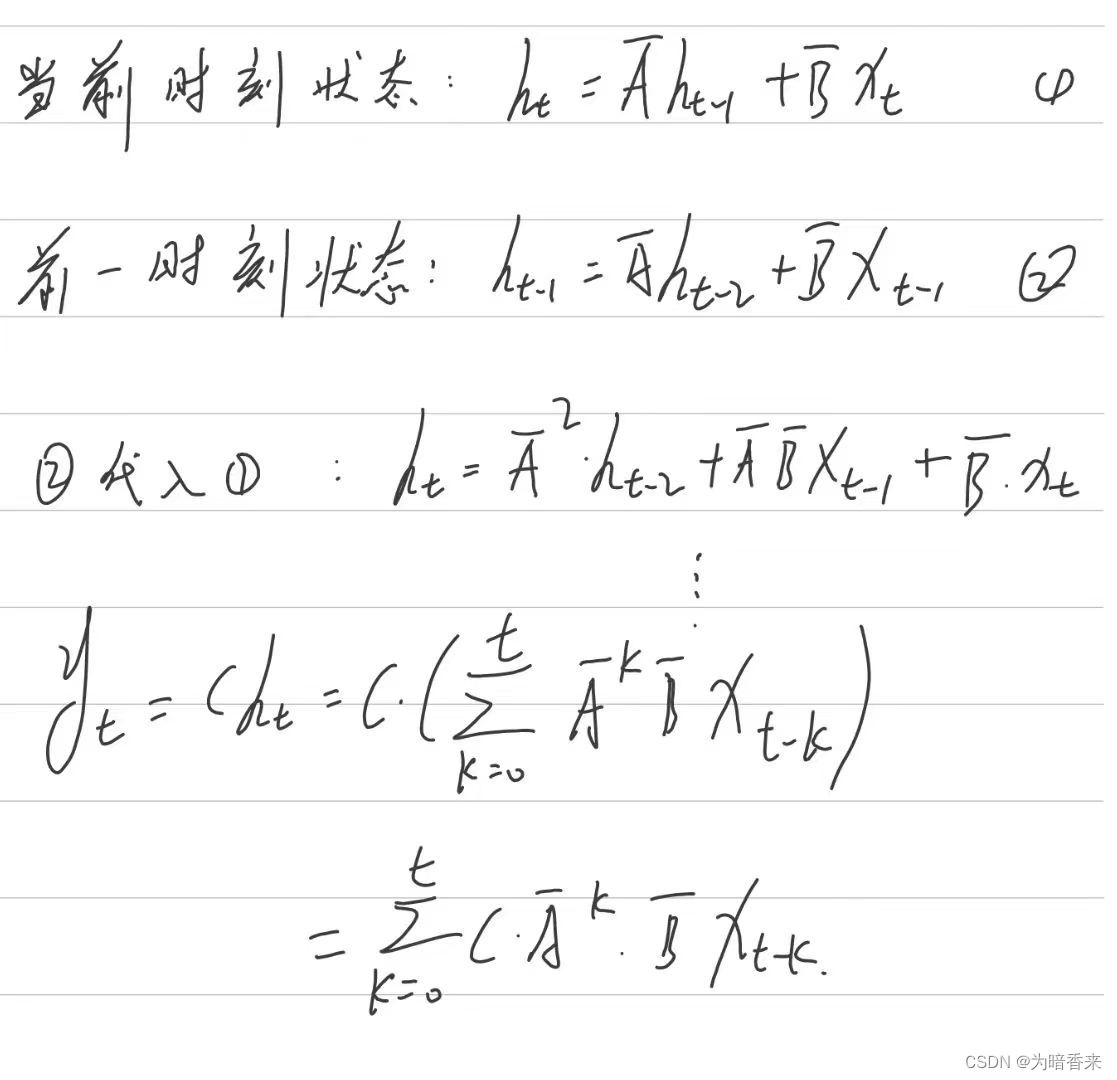 当前时刻状态: h_t = A̅h_{t-1} + B̅x_t ①
前一时刻状态: h_{t-1} = A̅h_{t-2} + B̅x_{t-1} ②
②代入① : h_t = A̅²·h_{t-2} + A̅B̅x_{t-1} + B̅·x_t
⋮
y_t = Ch_t = C·(∑_{k=0}^{t} A̅^k B̅ x_{t-k})
= ∑_{k=0}^{t} C·A̅^k·B̅ x_{t-k}.
CSDN @为暗香来